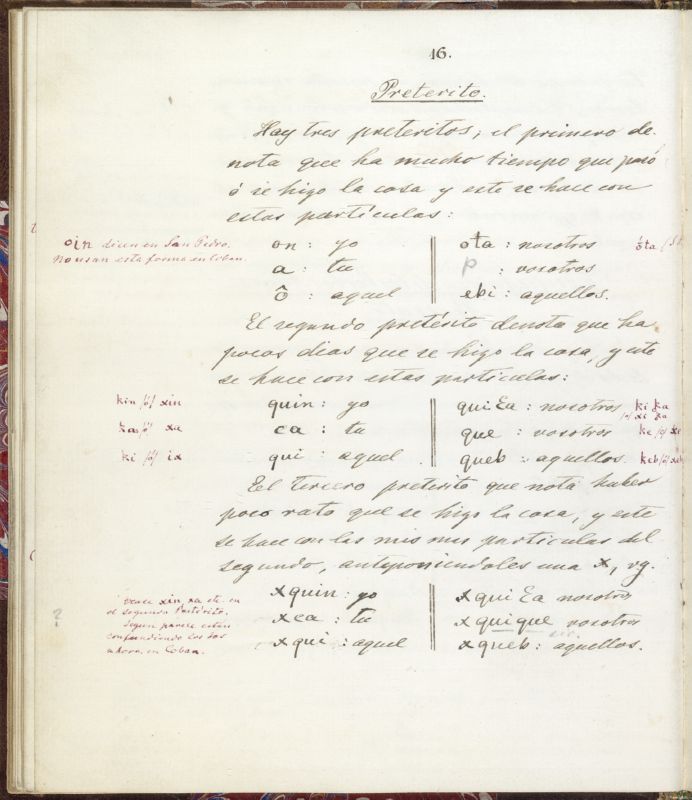 16.
Preterito.
Hay tres preteritos; el primero de-
nota que ha mucho tiempo que pasó
ó se hizo la cosa y este se hace con
estas partículas:
oin dicen en San Pedro. on : yo ota : nosotros óta
No usan esta forma en Coban. a : tu P : vosotros
ô : aquel ebi : aquellos.
El segundo pretérito denota que ha
pocos dias que se hizo la cosa, y este
se hace con estas partículas:
kin /ó/ xin quin : yo quiƐa : nosotros ki ka
/ó/ xi ka
ka /ó/ xa ca : tu que : vosotros ke /ó/ xe
ki /ó/ ix qui : aquel queb : aquellos. keb /ó/ xeb
El tercero preterito que nota haber
poco rato que se hizo la cosa, y este
se hace con las mismas partículas del
segundo, anteponiendoles una x, vg.
vease xin xa etc. en xquin : yo xquiƐa nosotros
el segundo Pretérito. xca : tu xquique vosotros
Segun parece estan sic.
confundiendo los dos xqui : aquel xqueb : aquellos.
ahora, en Coban.
?